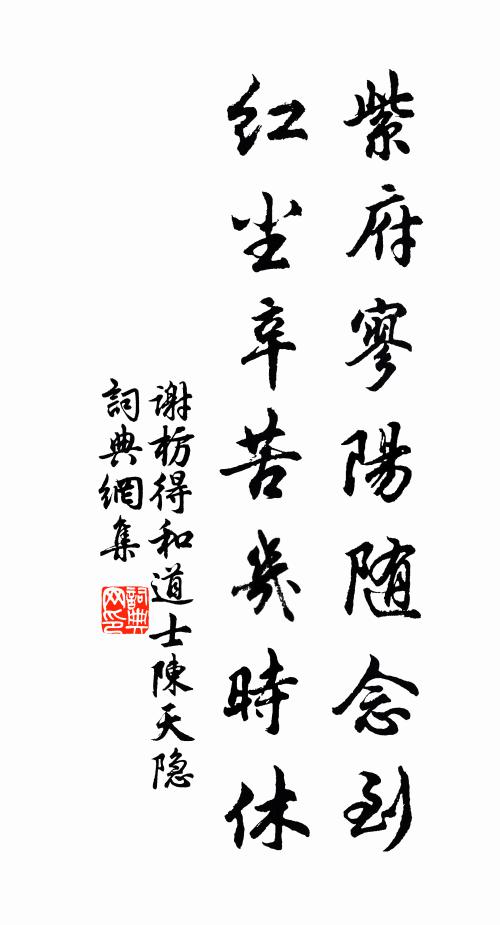 紫府寥陽随念到
红尘辛苦幾時休
谢枋得和道士陳天隐
詞典網集
詞典网印